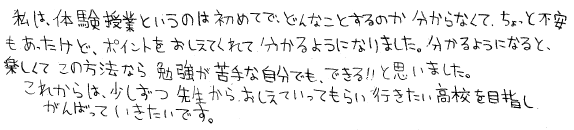 私は、体験授業というのは初めてで、どんなことするのか分からなくて、ちょっと不安
もあったけど、ポイントをおしえてくれて分かるようになりました。分かるようになると、
楽しくてこの方法なら勉強が苦手な自分でも、できる!!と思いました。
これからは、少しずつ先生からおしえていってもらい行きたい高校を目指し
がんばっていきたいです。